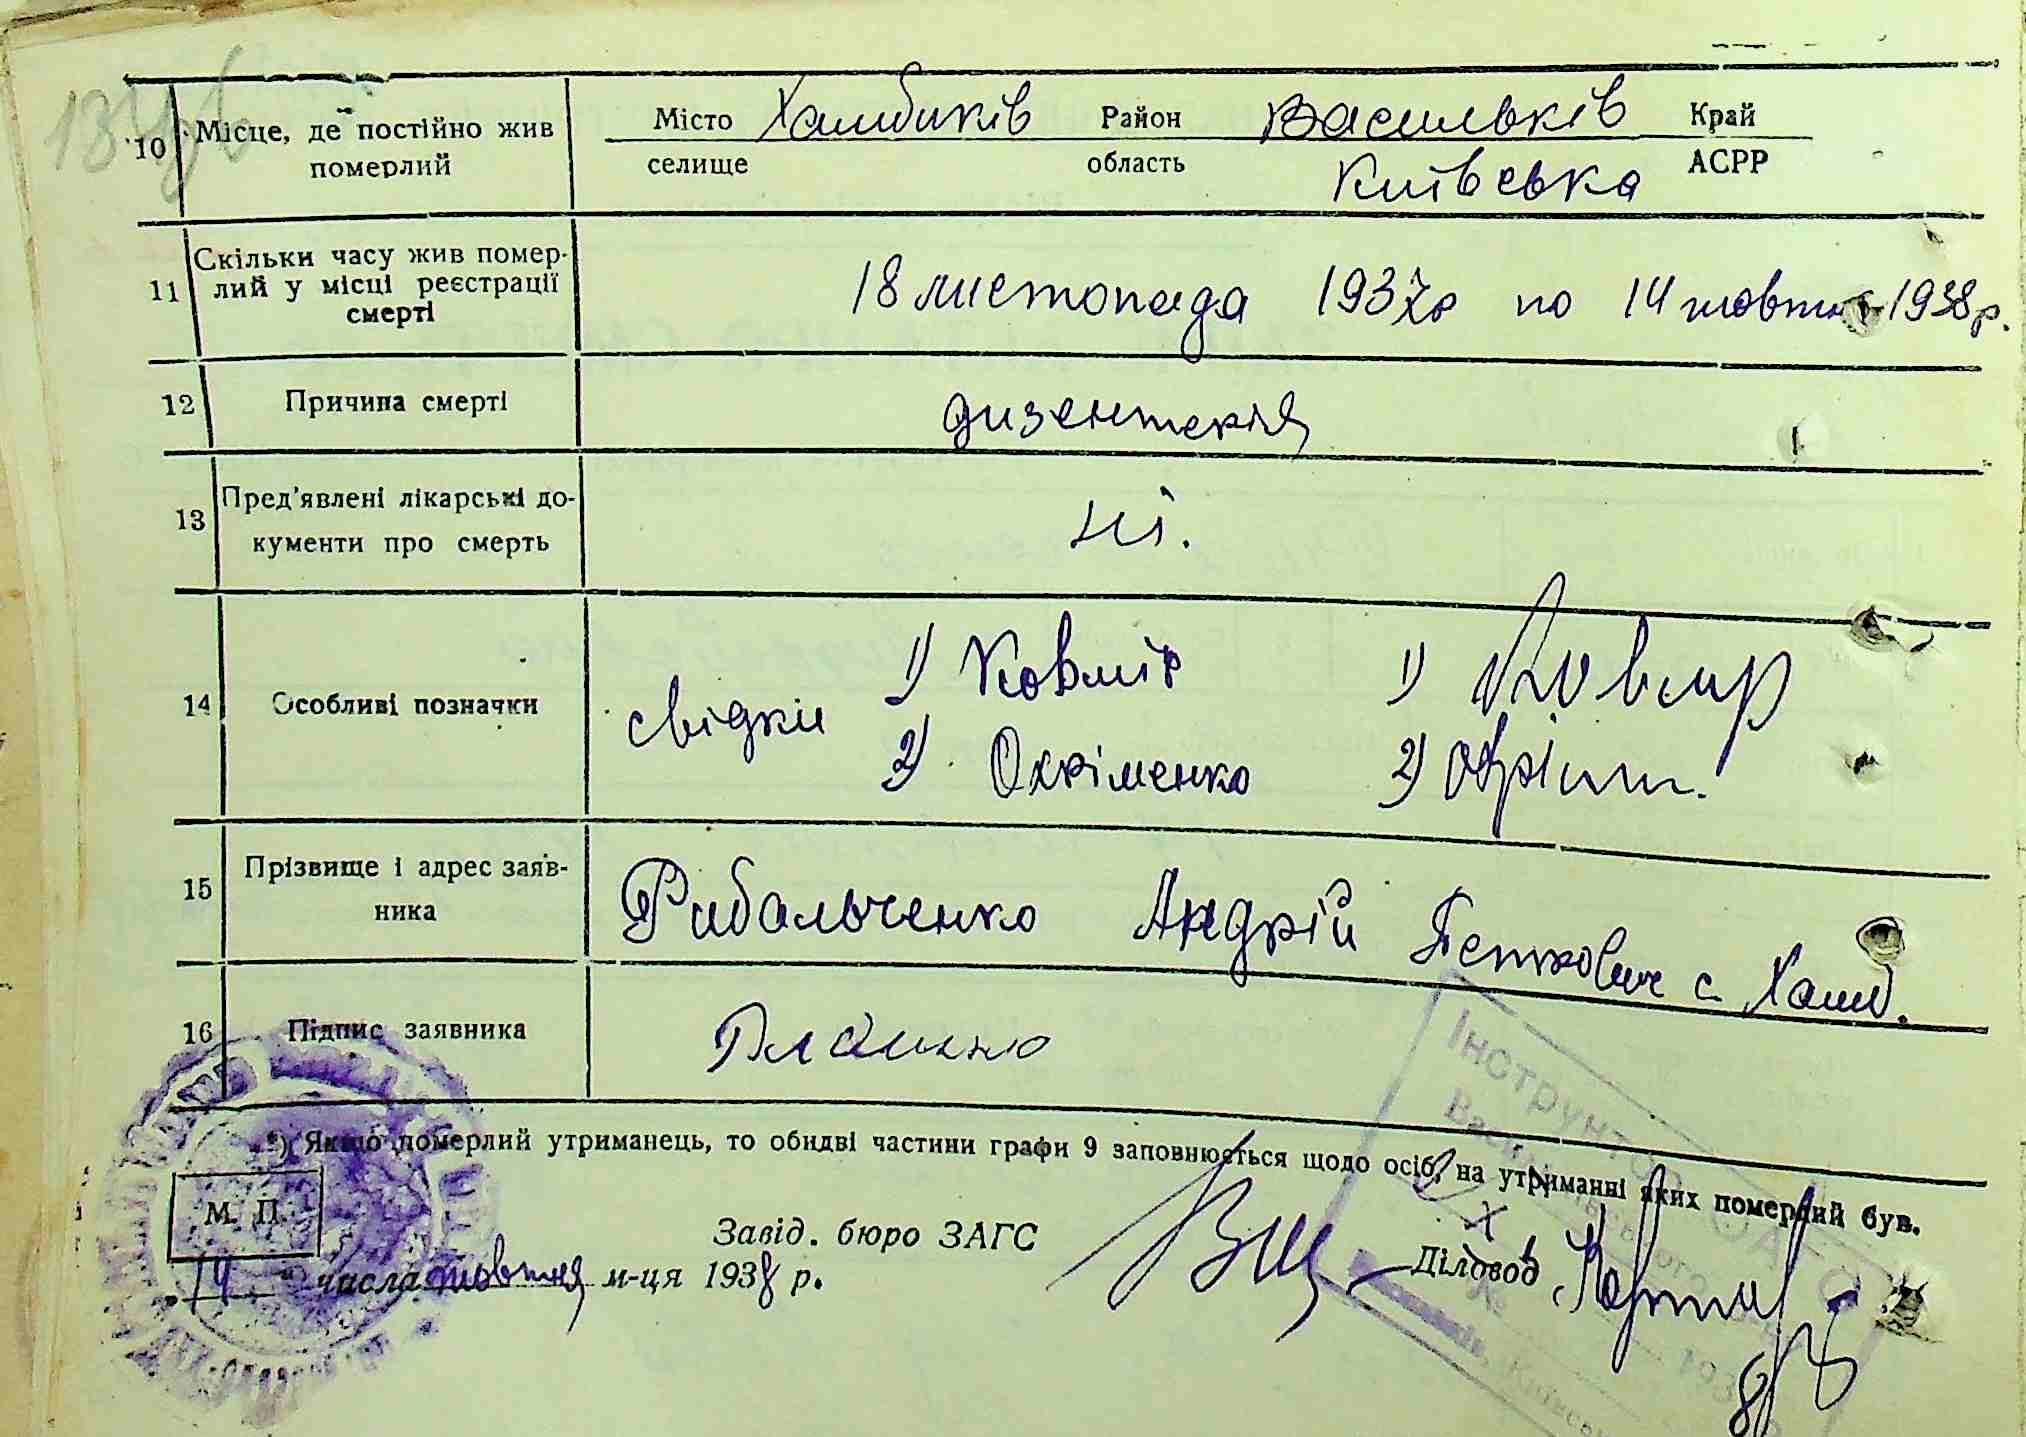 10 Місце, де постійно жив померлий
Місто Хамбиків Район Васильків Край
селище область Київська АСРР
11 Скільки часу жив помер-
лий у місці реєстрації
смерті
18 листопада 1937р по 14 жовтня 1938р.
12 Причина смерті дизентерія
13 Пред'явлені лікарські до-
кументи про смерть
ні.
14 Особливі позначки свідки
1) Ковмір 1)
2) Охріменко 2) Охрім.
15 Прізвище і адрес заяв-
ника
Рибальченко Андрій Петрович с. Хамб.
16 Підпис заявника
*) Якщо померлий утриманець, то обидві частини графи 9 заповнюється щодо осіб, на утриманні яких померлий був.
М. П.
Завід. бюро ЗАГС
Діловод
„14" числа жовтня м-ця 1938 р.
Інструктор ЗАГС
Васильківського
193